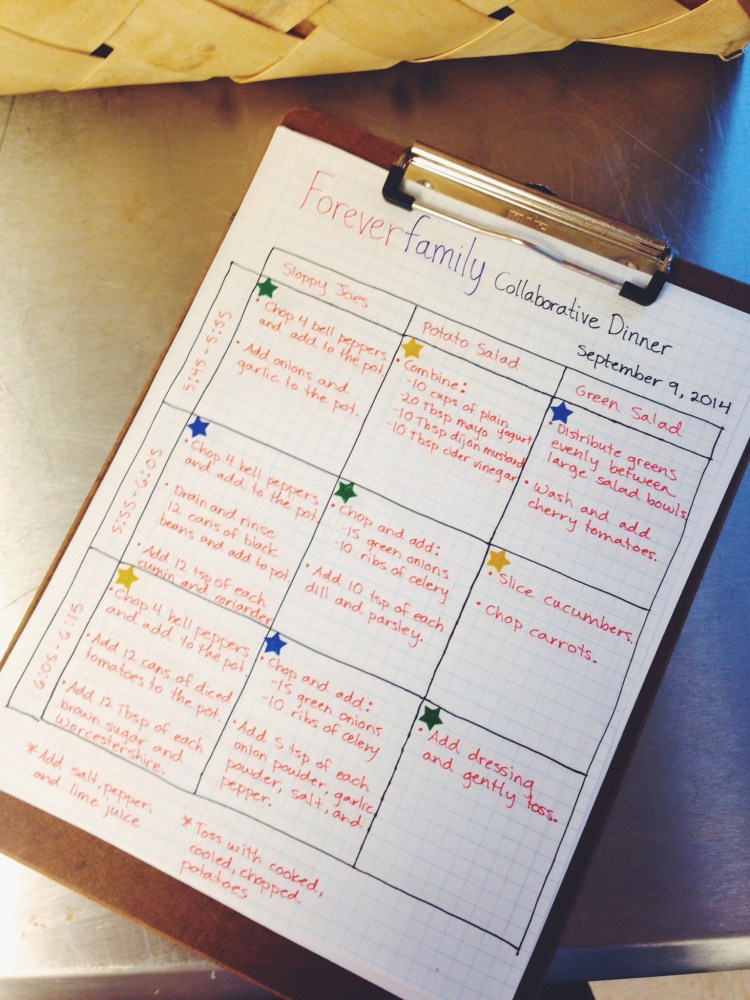 Foreverfamily Collaborative Dinner
September 9, 2014
Sloppy Joes
Potato Salad
Green Salad
5:45-5:55
• Chop 4 bell peppers
and add to the pot.
• Add onions and
garlic to the pot.
• Combine:
-10 cups of plain
yogurt
-20 Tbsp mayo
-10 Tbsp dijon mustard
-10 Tbsp cider vinegar
• Distribute greens
evenly between
large salad bowls.
• Wash and add
cherry tomatoes.
5:55-6:05
• Chop 4 bell peppers
and add to the pot.
• Drain and rinse
12 cans of black
beans and add to pot.
• Add 12 tsp of each
cumin and coriander
• Chop and add:
-15 green onions
-10 ribs of celery
• Add 10 tsp of each
dill and parsley.
• Slice cucumbers.
• Chop carrots.
6:05-6:15
• Chop 4 bell peppers
and add to the pot.
• Add 12 cans of diced
tomatoes to the pot.
• Add 12 Tbsp of each
brown sugar and
worcestershire.
• Chop and add:
-15 green onions
-10 ribs of celery
• Add 5 tsp of each
onion powder, garlic
powder, salt, and
pepper.
• Add dressing
and gently toss.
* Add salt, pepper,
and lime juice
* Toss with cooked,
cooled, chopped
potatoes